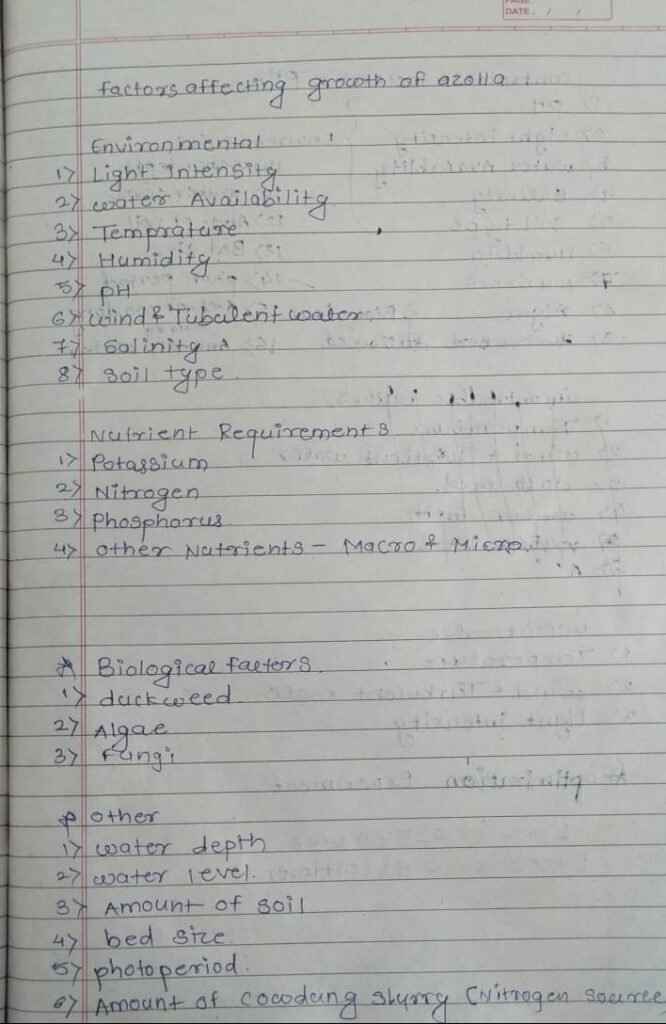 PAGE:
DATE: / /
factors affecting growth of azolla.
Environmental
1) Light Intensity
2) water Availability
3) Temprature
4) Humidity
5) pH
6) wind & Tubulent water
7) Salinity
8) Soil type
Nutrient Requirements
1) Potassium
2) Nitrogen
3) Phosphorus
4) other Nutrients - Macro & Micro.
* Biological factors
1) duckweed
2) Algae
3) Fungi
* other
1) water depth
2) water level.
3) Amount of soil
4) bed size
5) photoperiod.
6) Amount of cocodung slurry (Nitrogen source